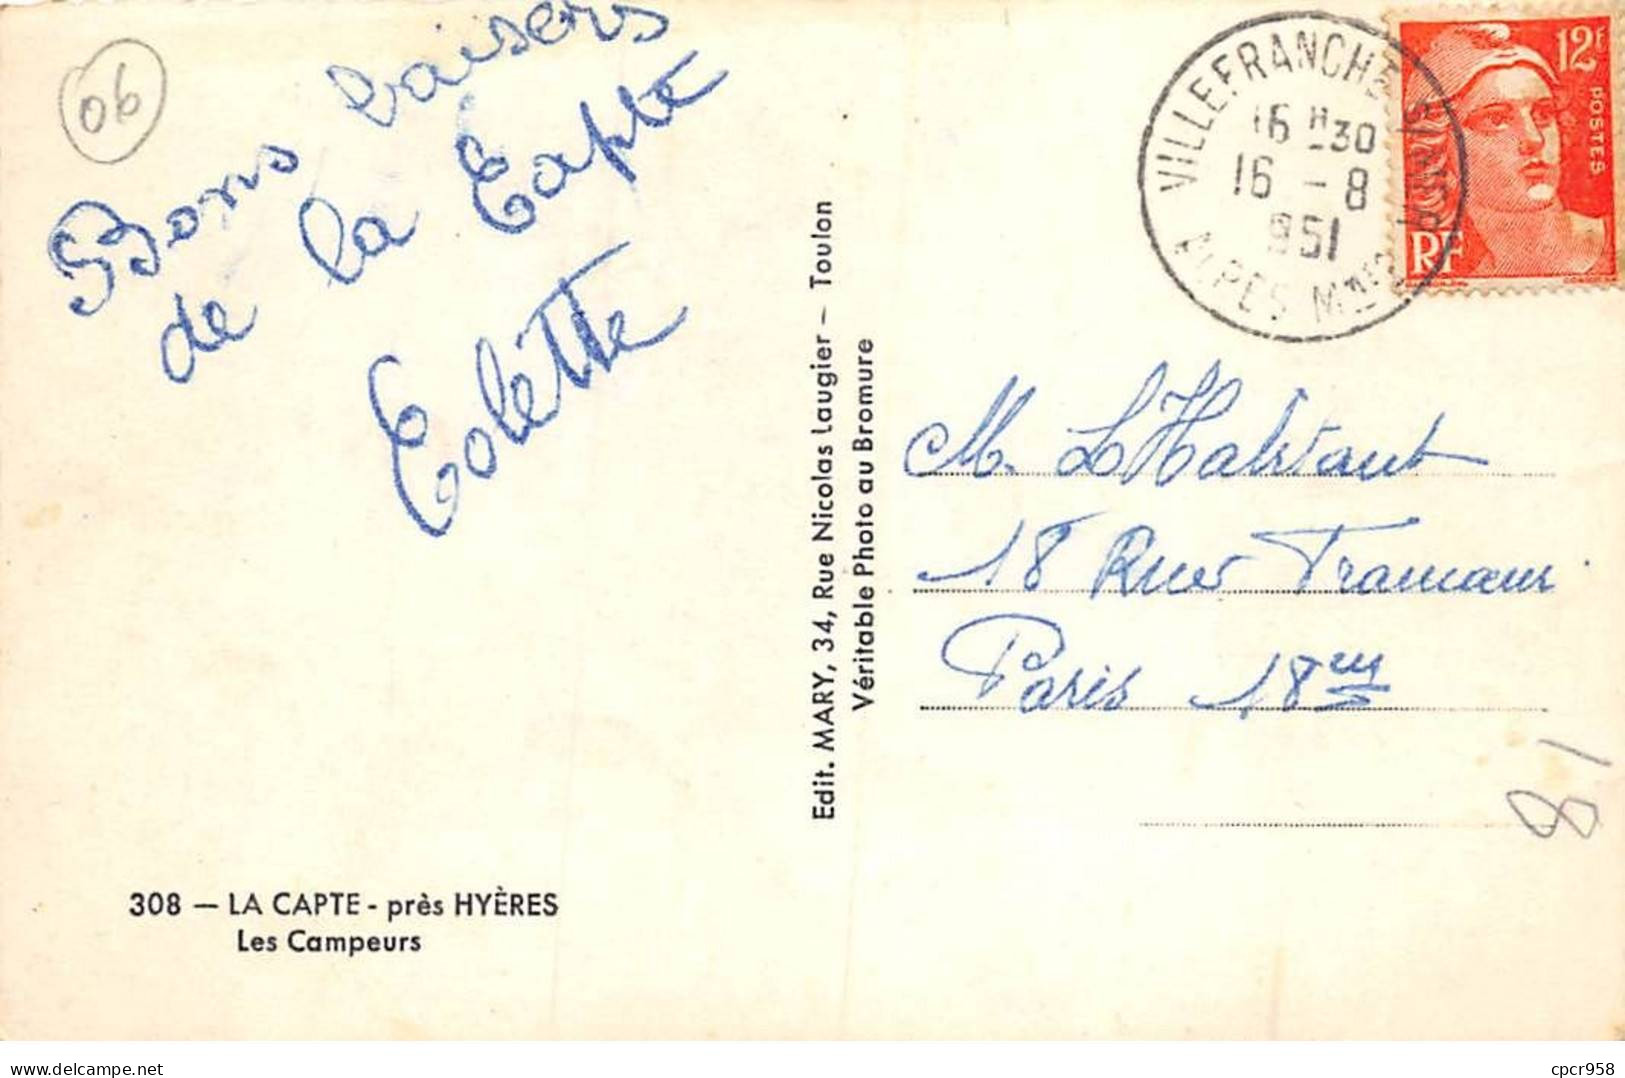 06
Bons baisers
de la Capte
Colette
308 — LA CAPTE - près HYÈRES
Les Campeurs
Edit. MARY, 34, Rue Nicolas Laugier — Toulon
Véritable Photo au Bromure
VILLEFRANCHE S/MER
16 H 30
16 - 8
951
ALPES Mmes
12F
POSTES
RF
M.
18 Rue
Paris 18me
81
delcampe.net
cpcr958